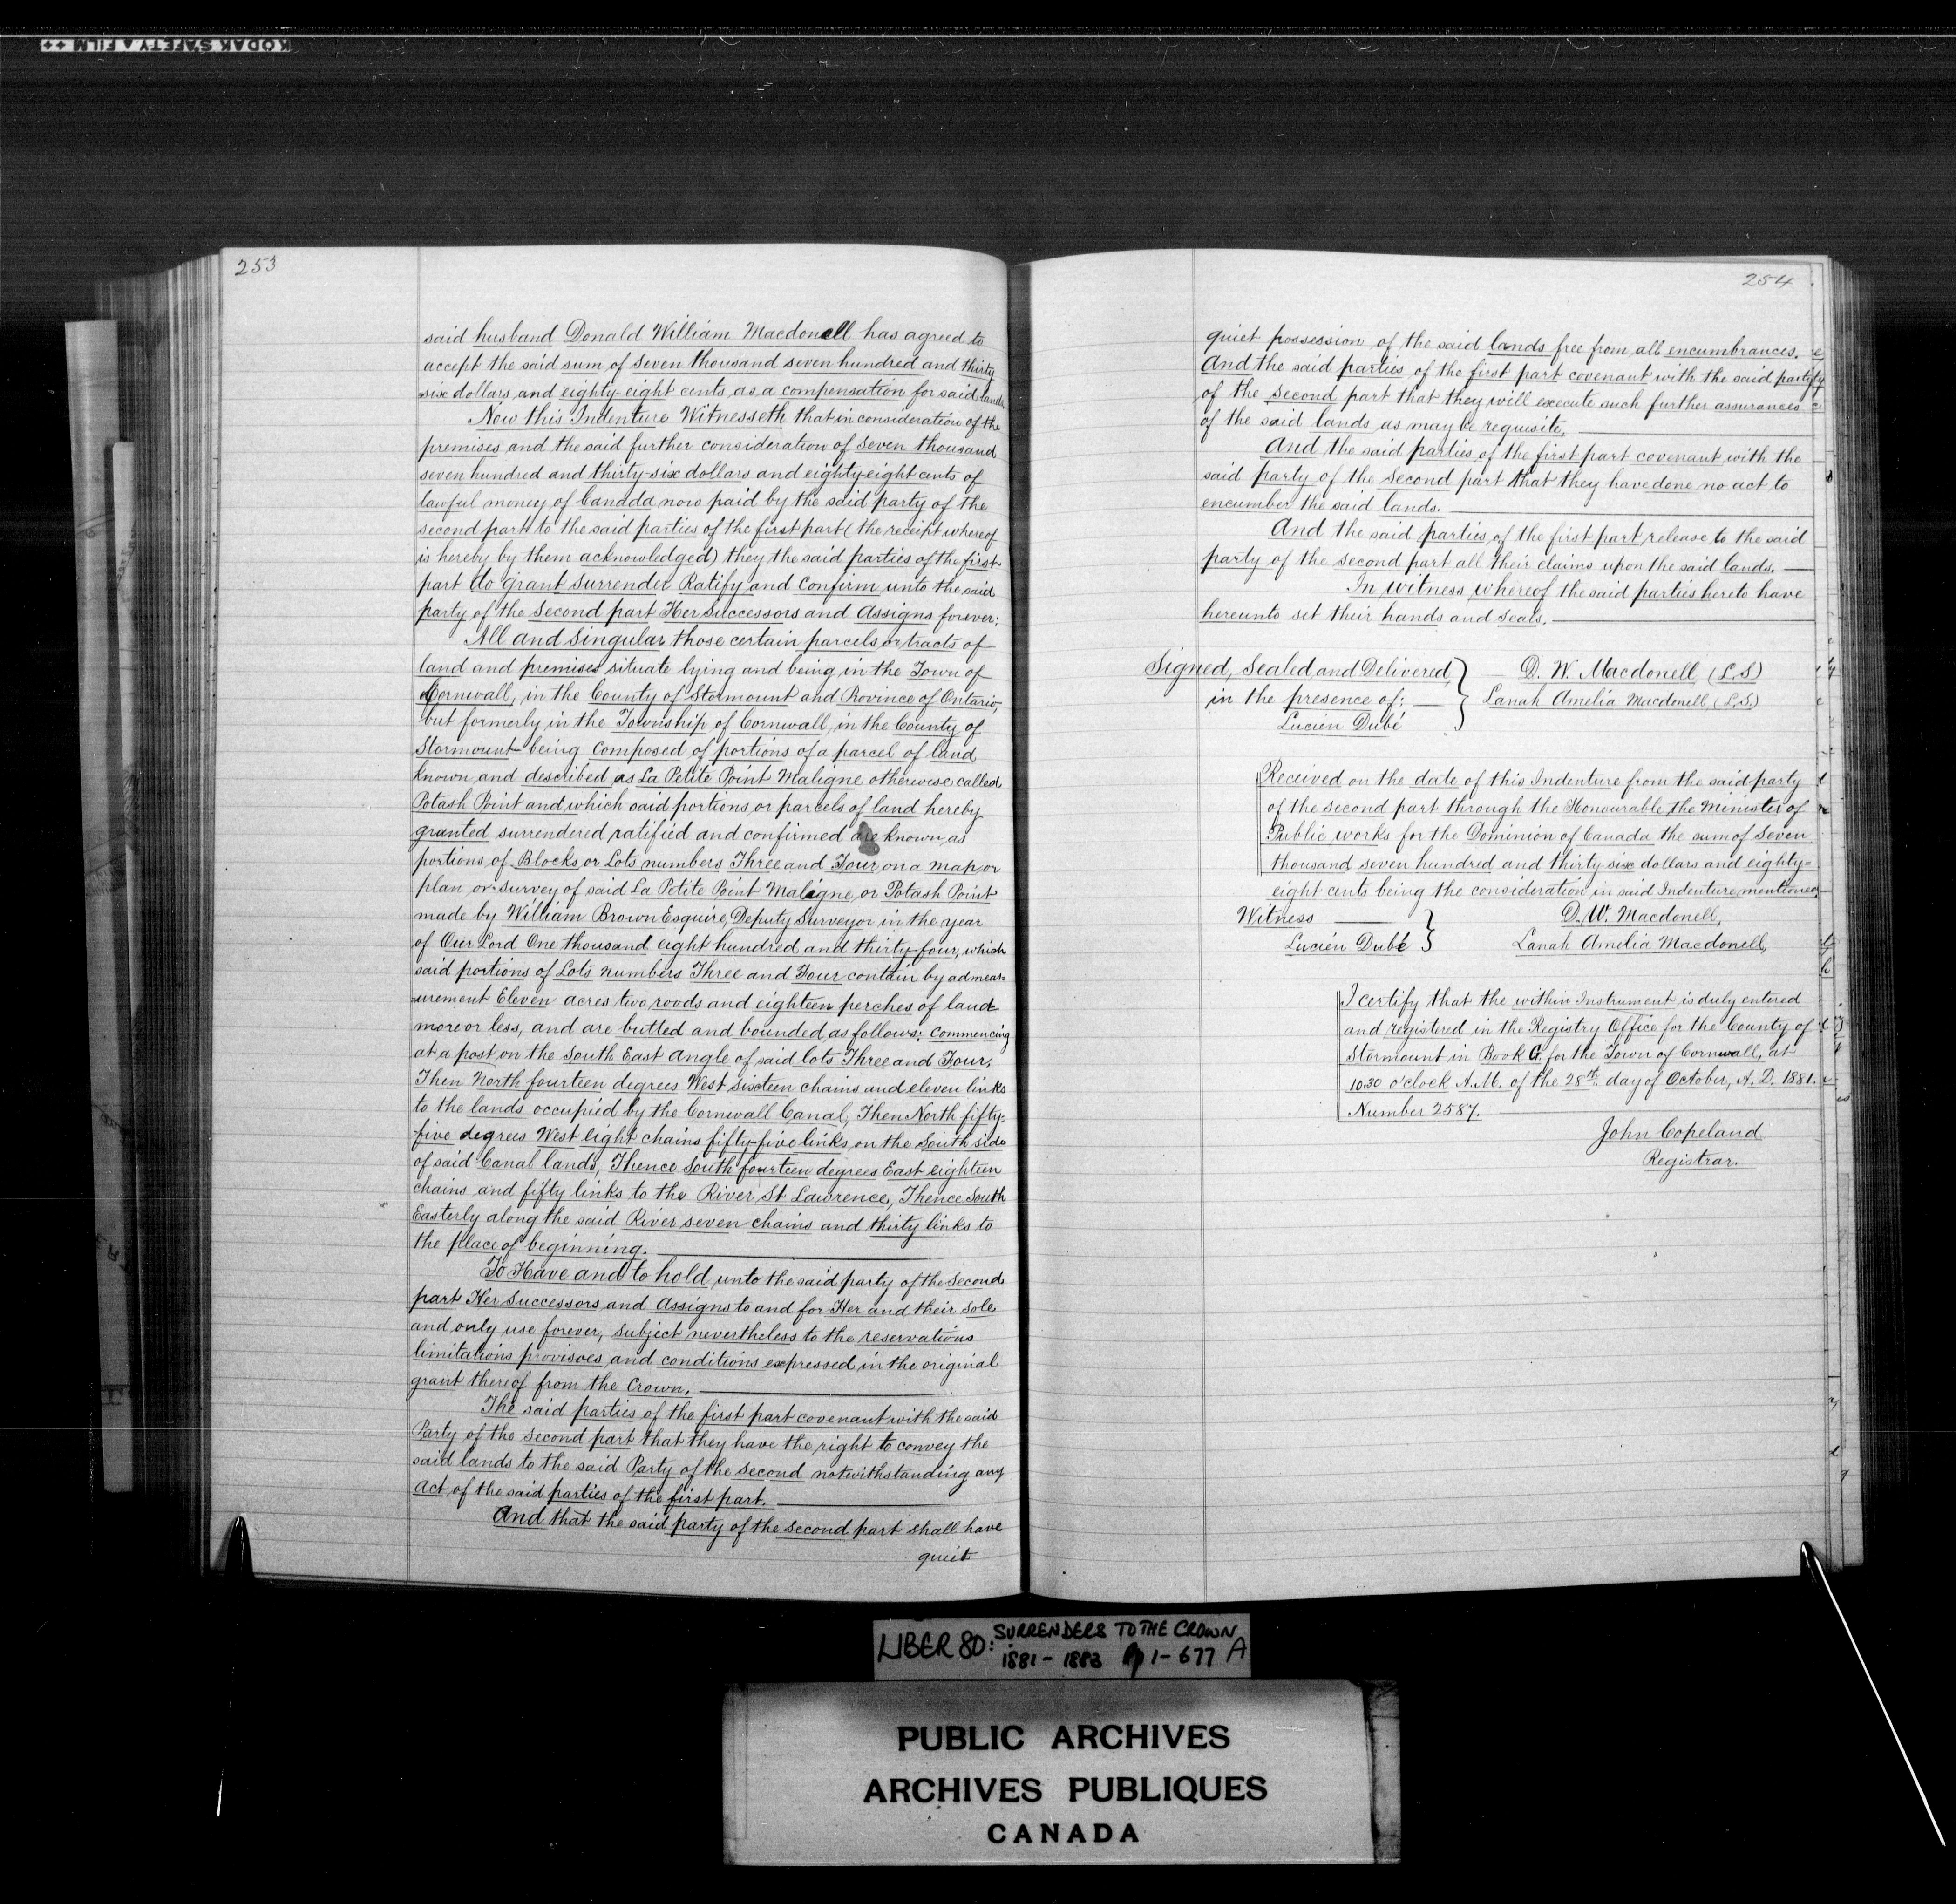 KODAK SAFETY FILM
253
said husband Donald William Macdonell has agreed to
accept the said sum of seven thousand seven hundred and thirty
six dollars and eighty-eight cents as a compensation for said lands
Now this Indenture Witnesseth that in consideration of the
premises and the said further consideration of seven thousand
seven hundred and thirty-six dollars and eighty-eight cents of
lawful money of Canada now paid by the said party of the
second part to the said parties of the first part (the receipt whereof
is hereby by them acknowledged) they the said parties of the first
part do grant surrender Ratify and Confirm unto the said
party of the second part Her Successors and Assigns forever:
All and Singular those certain parcels or tracts of
land and premises situate lying and being in the Town of
Cornwall, in the County of Stormount and Province of Ontario,
but formerly in the Township of Cornwall, in the County of
Stormount being composed of portions of a parcel of land
known and described as La Petite Point Maligne otherwise called
Potash Point and which said portions or parcels of land hereby
granted surrendered ratified and confirmed are known as
portions of Blocks or Lots numbers Three and Four on a map or
plan or survey of said La Petite Point Maligne or Potash Point
made by William Brown Esquire, Deputy Surveyor in the year
of Our Lord One thousand eight hundred and thirty-four, which
said portions of Lots numbers Three and Four contain by admeas-
urement Eleven acres two roods and eighteen perches of land
more or less, and are butted and bounded as follows: Commencing
at a post on the South East Angle of said lots Three and Four,
Then North fourteen degrees West sixteen chains and eleven links
to the lands occupied by the Cornwall Canal, Then North fifty-
five degrees West eight chains fifty-five links on the South side
of said Canal lands, Thence South fourteen degrees East eighteen
chains and fifty links to the River St Lawrence, Thence South
Easterly along the said River seven chains and thirty links to
the place of beginning.
To Have and to hold unto the said party of the Second
part Her Successors and Assigns to and for Her and their sole
and only use forever, subject nevertheless to the reservations
limitations provisoes and conditions expressed in the original
grant thereof from the Crown.
The said parties of the first part covenant with the said
Party of the Second part that they have the right to convey the
said lands to the said Party of the Second notwithstanding any
act of the said parties of the first part.
And that the said party of the second part shall have
quiet
254
quiet possession of the said lands free from all encumbrances.
And the said parties of the first part covenant with the said party
of the second part that they will execute such further assurances
of the said lands as may be requisite.
And the said parties of the first part covenant with the
said party of the second part that they have done no act to
encumber the said lands.
And the said parties of the first part release to the said
party of the second part all their claims upon the said lands.
In Witness whereof the said parties hereto have
hereunto set their hands and seals.
Signed, Sealed and Delivered } D. W. Macdonell, (L.S)
in the presence of: Lanah Amelia Macdonell, (L.S.)
Lucien Dubé
Received on the date of this Indenture from the said party
of the second part through the Honourable the Minister of
Public works for the Dominion of Canada the sum of Seven
thousand seven hundred and thirty six dollars and eighty-
eight cents being the consideration in said Indenture mentioned
Witness } D. W. Macdonell,
Lucien Dubé Lanah Amelia Macdonell,
I certify that the within Instrument is duly entered
and registered in the Registry Office for the County of
Stormount in Book G. for the Town of Cornwall, at
10.30 o'clock A.M. of the 28th day of October, A.D. 1881.
Number 2587.
John Copeland
Registrar.
LIBER 80: SURRENDERS TO THE CROWN
1881-1883 pp 1-677 A
PUBLIC ARCHIVES
ARCHIVES PUBLIQUES
CANADA